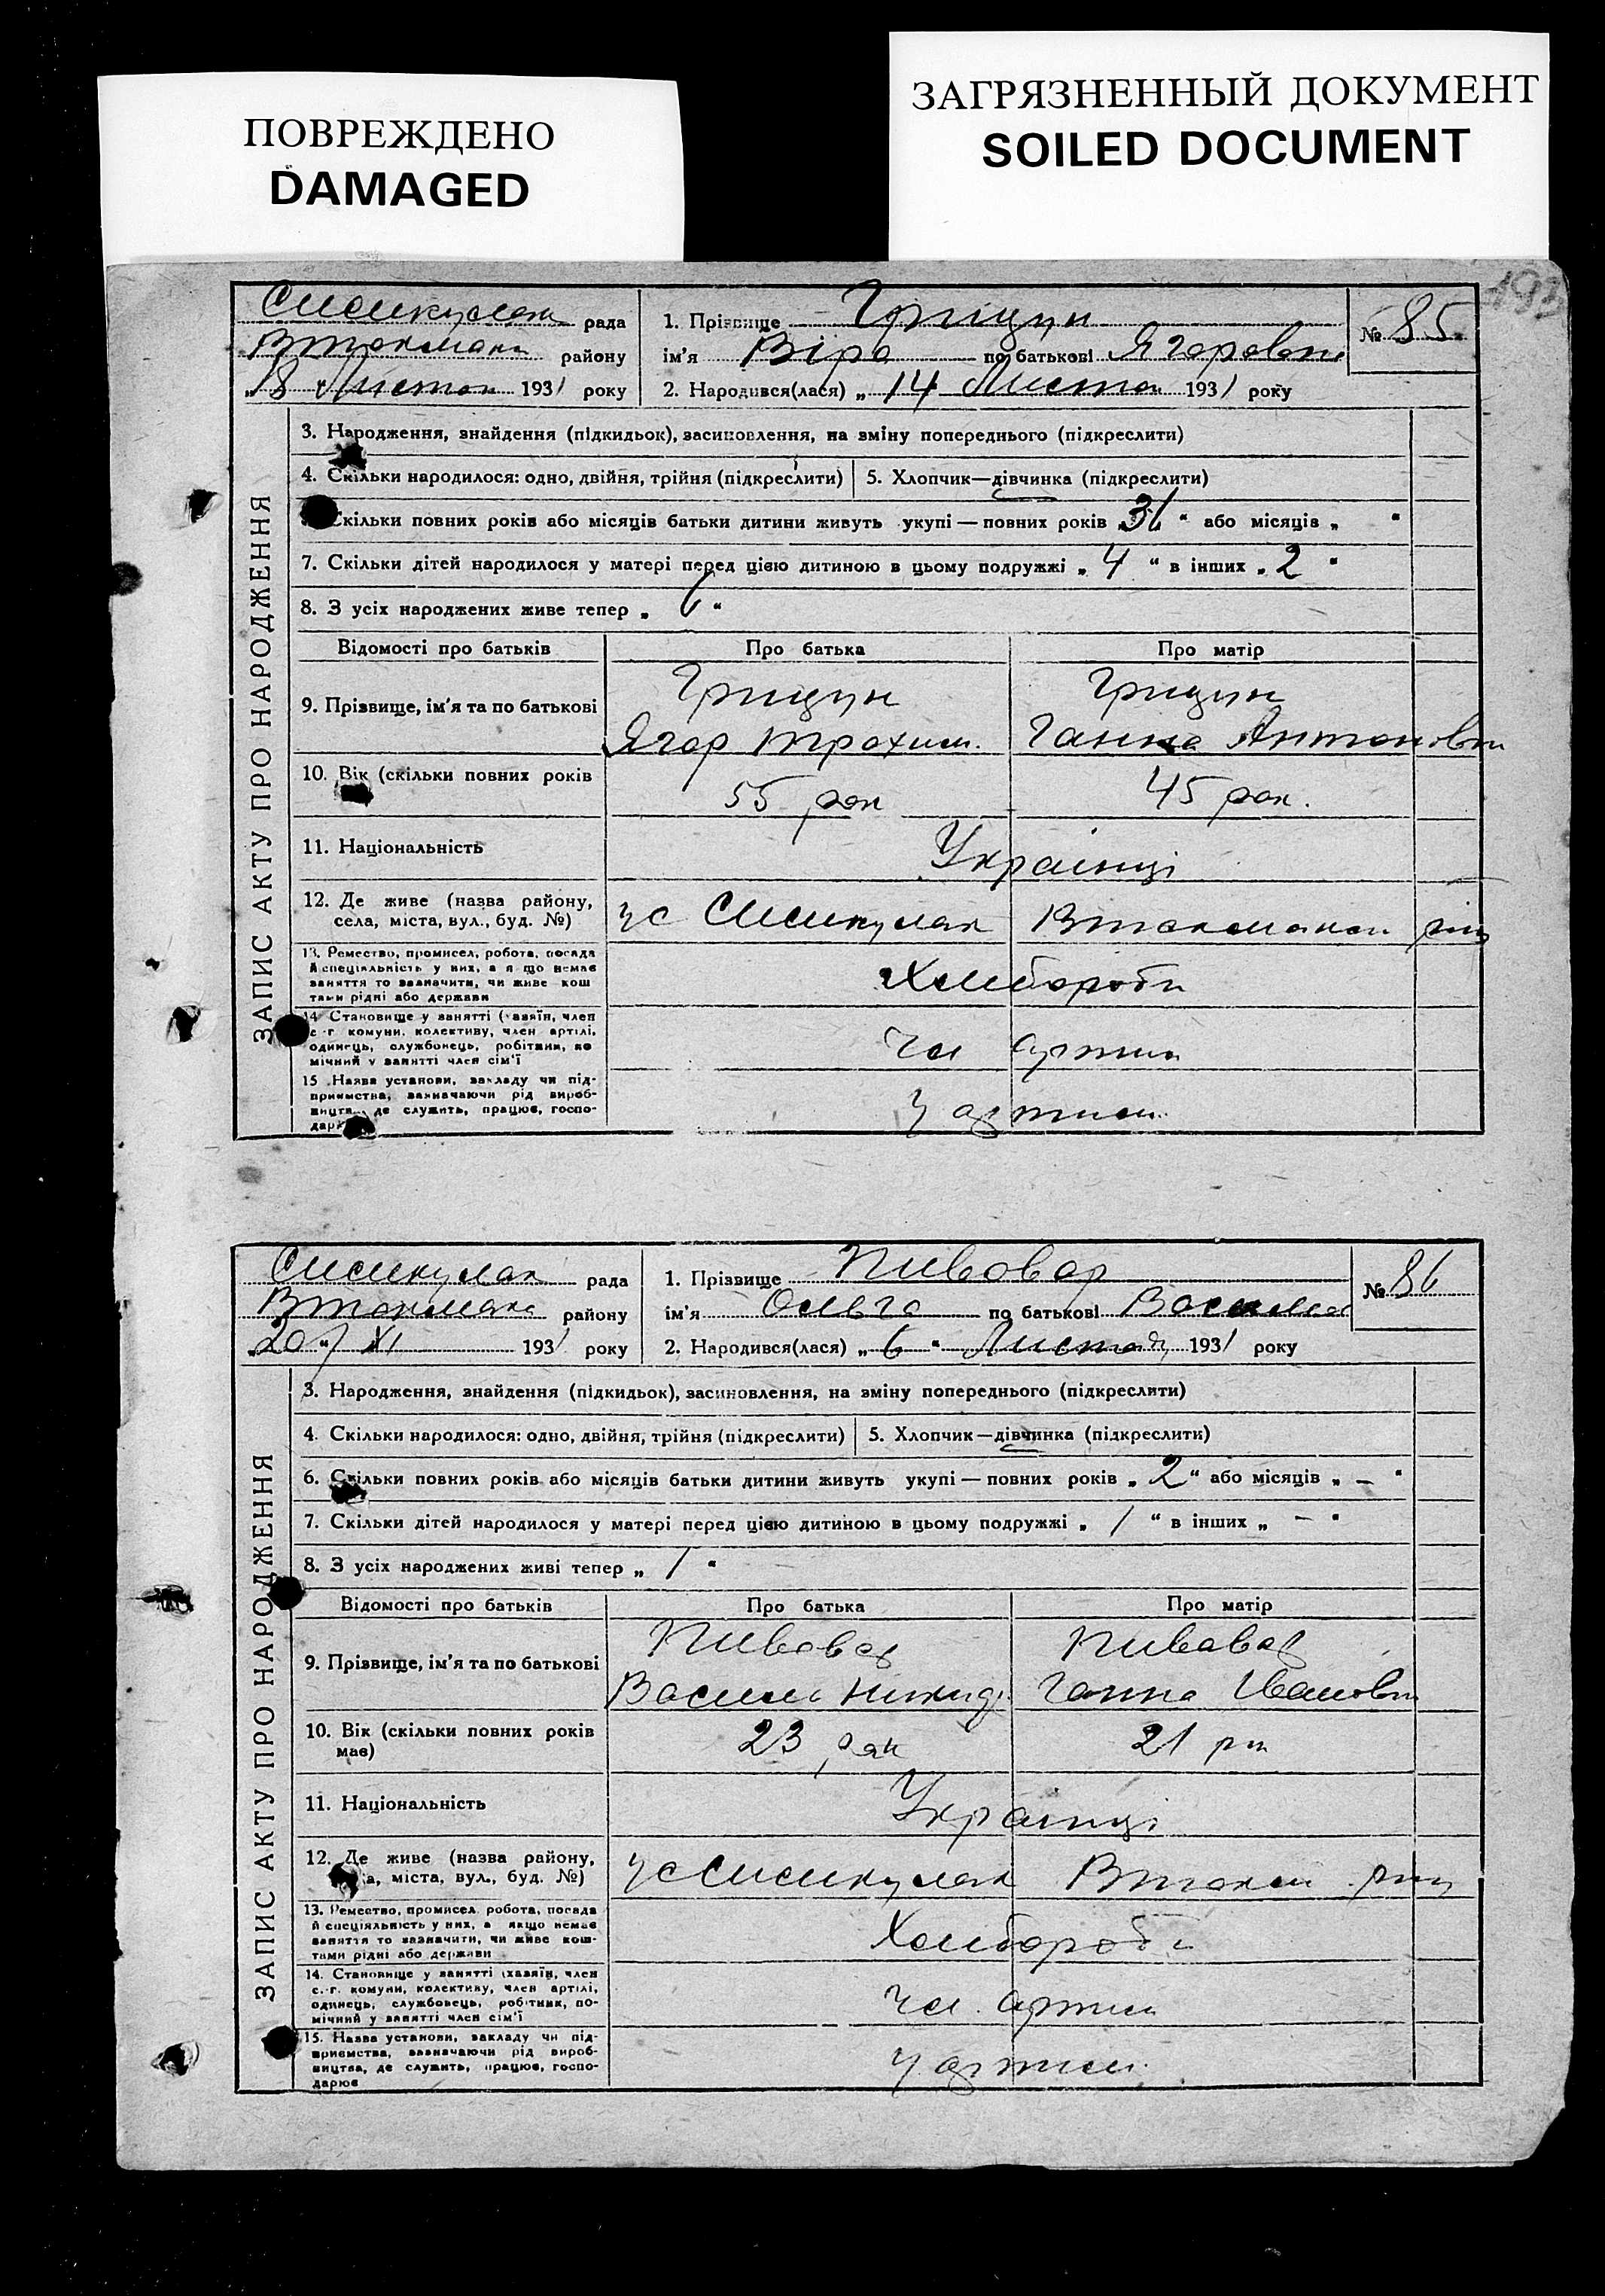 ПОВРЕЖДЕНО
DAMAGED
ЗАГРЯЗНЕННЫЙ ДОКУМЕНТ
SOILED DOCUMENT
193
рада
району
"18 Листоп 1931 року
1. Прізвище Грицун
ім'я Віра по батькові Ягоровна
2. Народився(лася) „ 14 Листоп 1931 року
№ 85
ЗАПИС АКТУ ПРО НАРОДЖЕННЯ
3. Народження, знайдення (підкидьок), засиновлення, на зміну попереднього (підкреслити)
4. Скільки народилося: одно, двійня, трійня (підкреслити)
5. Хлопчик—дівчинка (підкреслити)
Скільки повних років або місяців батьки дитини живуть укупі — повних років „ “ або місяців „ “
7. Скільки дітей народилося у матері перед цією дитиною в цьому подружжі „ 4 “ в інших „ 2 “
8. З усіх народжених живе тепер „ 6 “
Відомості про батьків
Про батька
Про матір
9. Прізвище, ім'я та по батькові
Грицун
Ягор Трохим.
Грицун
Ганна Антоновн
10. Вік (скільки повних років
55 рок
45 рок.
11. Національність
Українці
12. Де живе (назва району,
села, міста, вул., буд. №)
13. Ремество, промисел, робота, посада
й спеціяльність у них, а якщо немає
заняття то зазначити, чи живе кош
тами рідні або держави
Хлібороби
14 Становище у занятті (хазяїн, член
с.-г. комуни, колективу, член артілі,
одинець, службовець, робітник, по
мічний у занятті член сім'ї
Чл артили
15 Назва установи, закладу чи під-
приємства, зазначаючи рід вироб-
ництва, де служить, працює, госпо-
дарює
У артили
рада
району
"20" XI 1931 року
1. Прізвище Пивовар
ім'я Ольга по батькові Василів
2. Народився(лася) „ 6 “ Листоп 1931 року
№ 86
ЗАПИС АКТУ ПРО НАРОДЖЕННЯ
3. Народження, знайдення (підкидьок), засиновлення, на зміну попереднього (підкреслити)
4. Скільки народилося: одно, двійня, трійня (підкреслити)
5. Хлопчик—дівчинка (підкреслити)
6. Скільки повних років або місяців батьки дитини живуть укупі — повних років „ 2 “ або місяців „ – “
7. Скільки дітей народилося у матері перед цією дитиною в цьому подружжі „ 1 “ в інших „ – “
8. З усіх народжених живі тепер „ 1 “
Відомості про батьків
Про батька
Про матір
9. Прізвище, ім'я та по батькові
Пивовар
Василь Никид.
Пивовар
Ганна Ивановн
10. Вік (скільки повних років
має)
23 рок
21 рок
11. Національність
Українці
12. Де живе (назва району,
а, міста, вул., буд. №)
13. Ремество, промисел, робота, посада
й спеціяльність у них, а якщо немає
заняття то зазначити, чи живе кош-
тами рідні або держави
Хлібороби
14. Становище у занятті (хазяїн, член
с.-г. комуни, колективу, член артілі,
одинець, службовець, робітник, по-
мічний у занятті член сім'ї
Чл. артили
15. Назва установи, закладу чи під-
приємства, зазначаючи рід вироб-
ництва, де служить, працює, госпо-
дарює
У артили